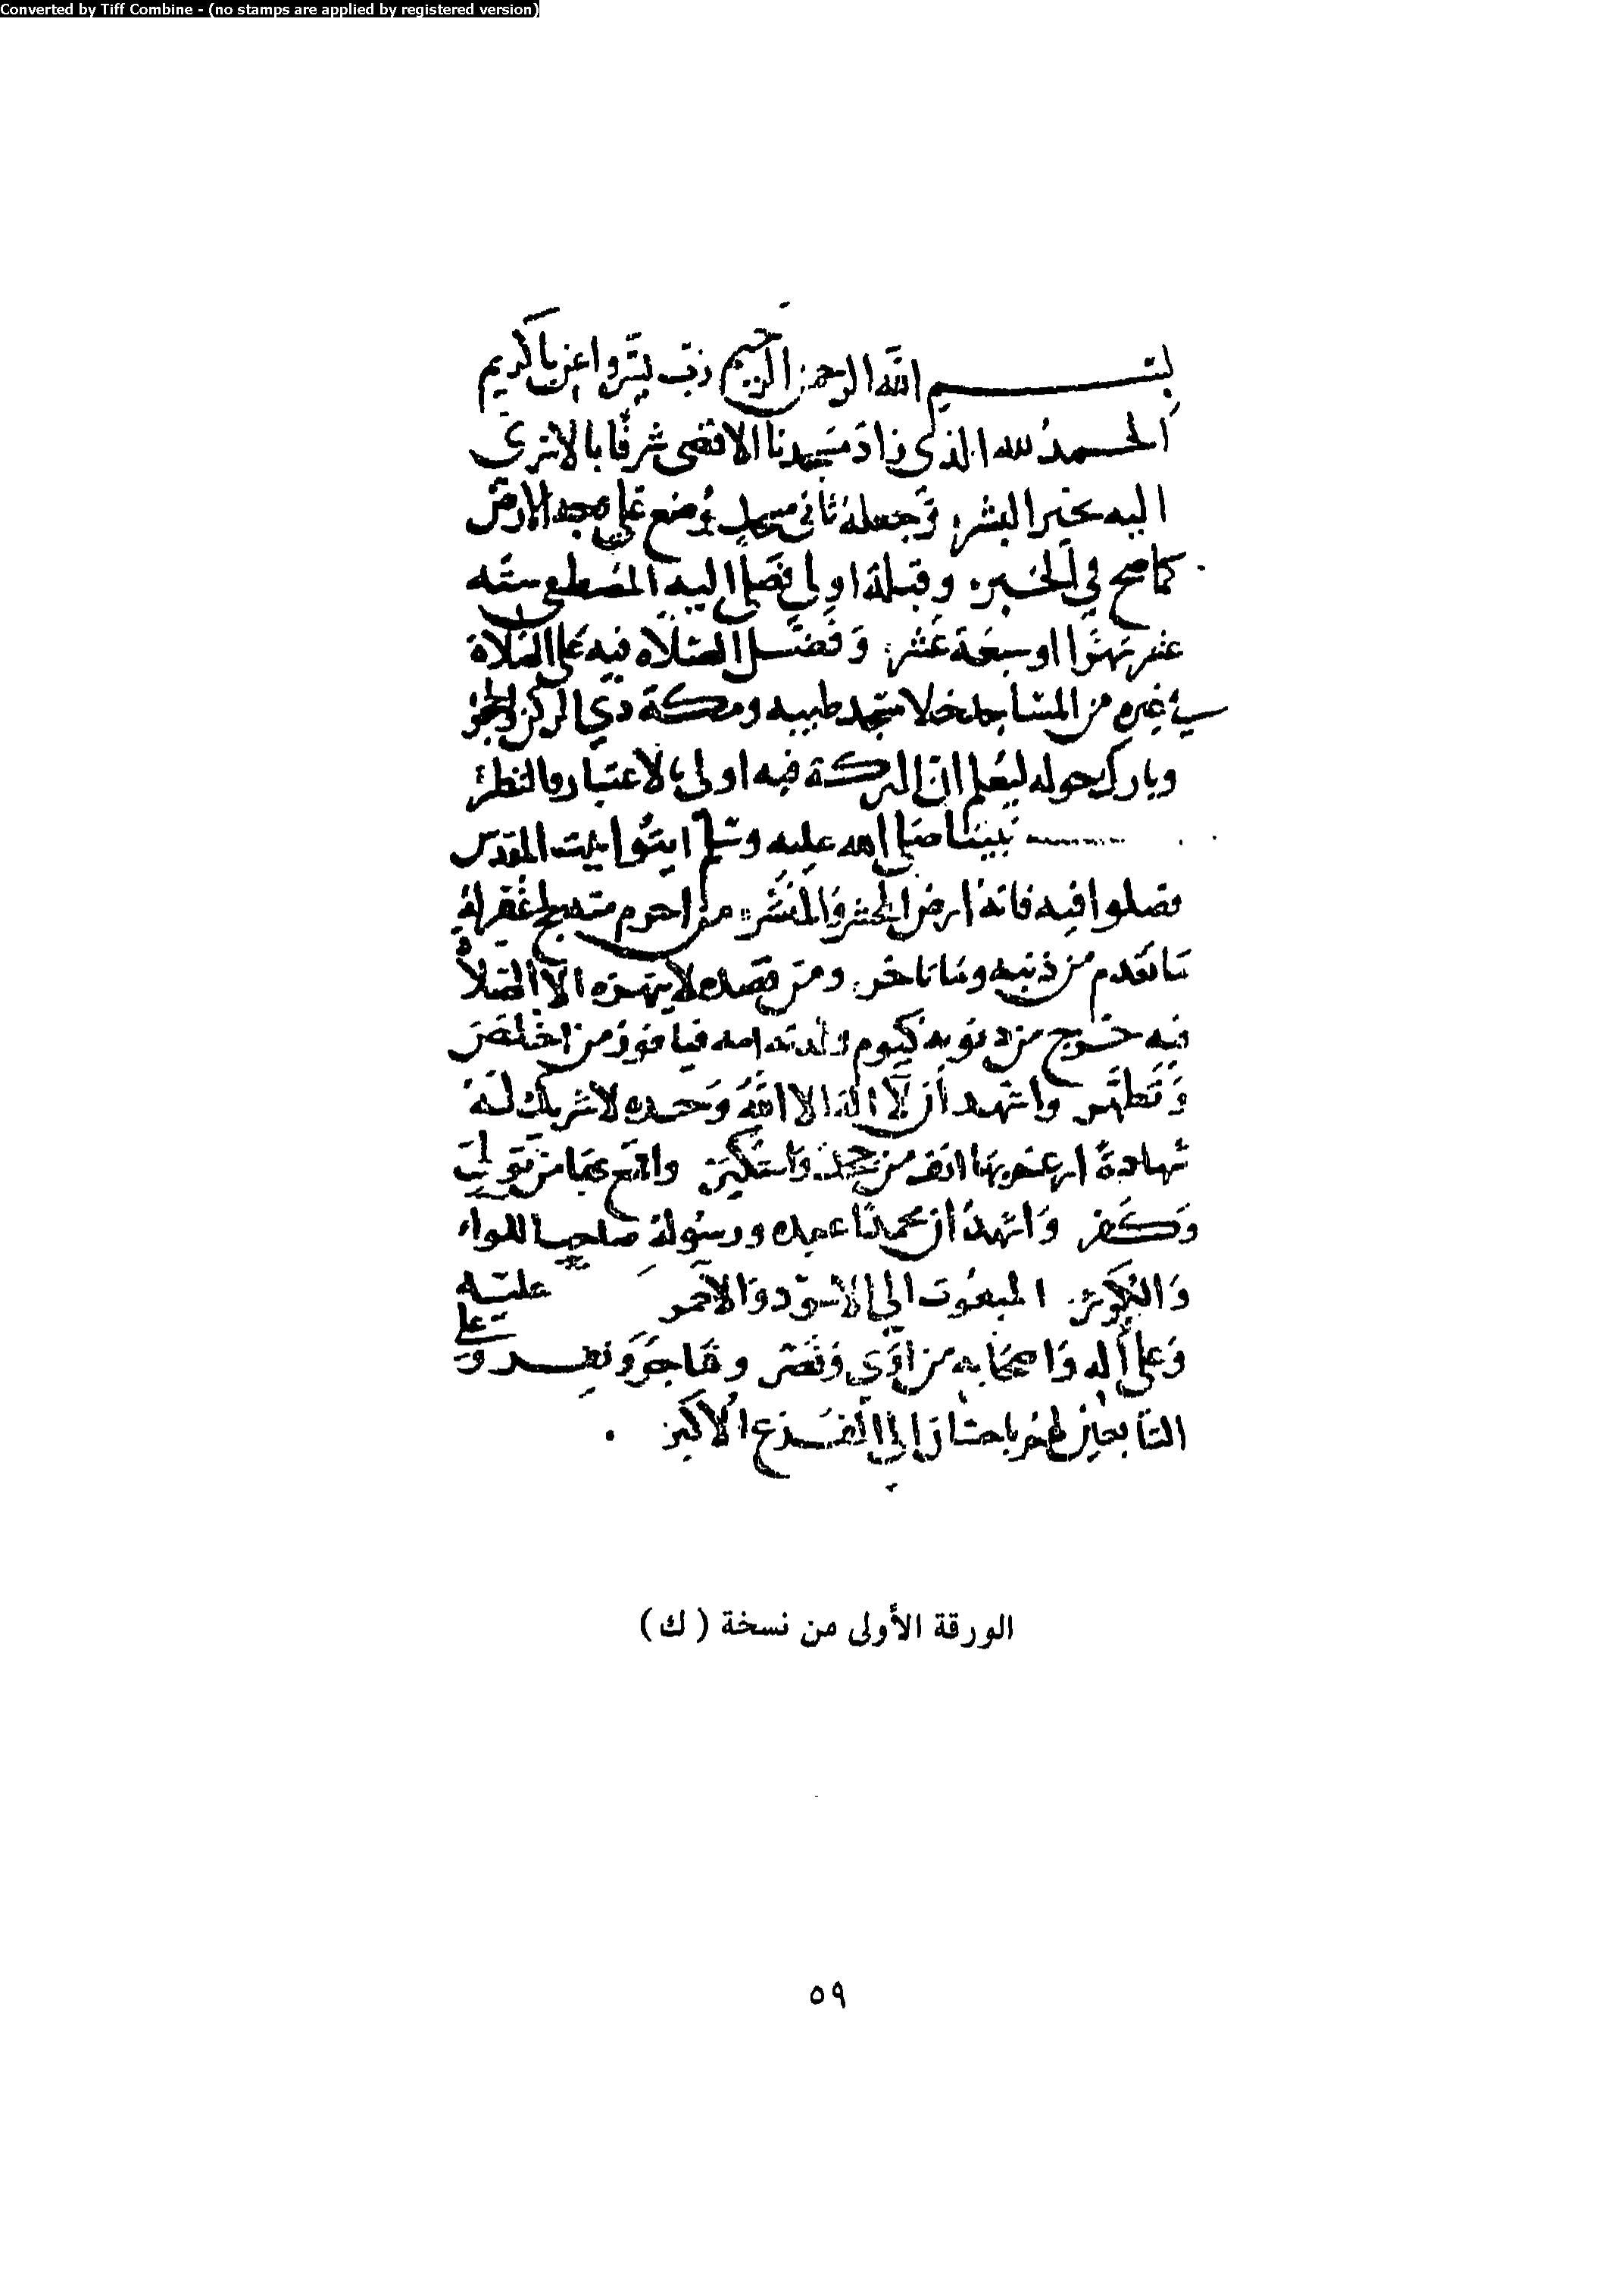 Converted by Tiff Combine - (no stamps are applied by registered version)
بسم الله الرحمن الرحيم رب يسر واعن يا كريم
الحمد لله الذي زاد مسجدنا الاقصى شرفا بالاسرى
اليه بخير البشر وجعله ثاني مسجد وضع على وجه الارض
كما صح في الخبر وقبلة اولى فصلى اليه المصطفى ستة
عشر شهرا او سبعة عشر وفضل الصلاة فيه على الصلاة
في غيره من المساجد خلا مسجد طيبه ومكة ذي الركن والحجر
وبارك حوله ليعلم ان البركة فيه اولى بالاعتبار والنظر
نبينا صلى الله عليه وسلم ايتوا بيت المقدس
فصلوا فيه فانه ارض المحشر والمنشر من احرم منه بحج غفر له
ما تقدم من ذنبه وما تاخر ومن قصده لا ينهزه الا الصلاة
فيه خرج من ذنوبه كيوم ولدته امه فيا فوز من اخلص
وتطهر واشهد ان لا اله الا الله وحده لا شريك له
شهادة ارغم بها انف من جحد واستكبر واقمع بها من تولى
وكفر واشهد ان محمدا عبده ورسوله صاحب اللواء
والكوثر المبعوث الى الاسود والاحمر عليه
وعلى اله واصحابه من اوى ونصر وهاجر وعلى
التابعين لهم باحسان الى الفزع الاكبر
الورقة الأولى من نسخة ( ك )
٥٩